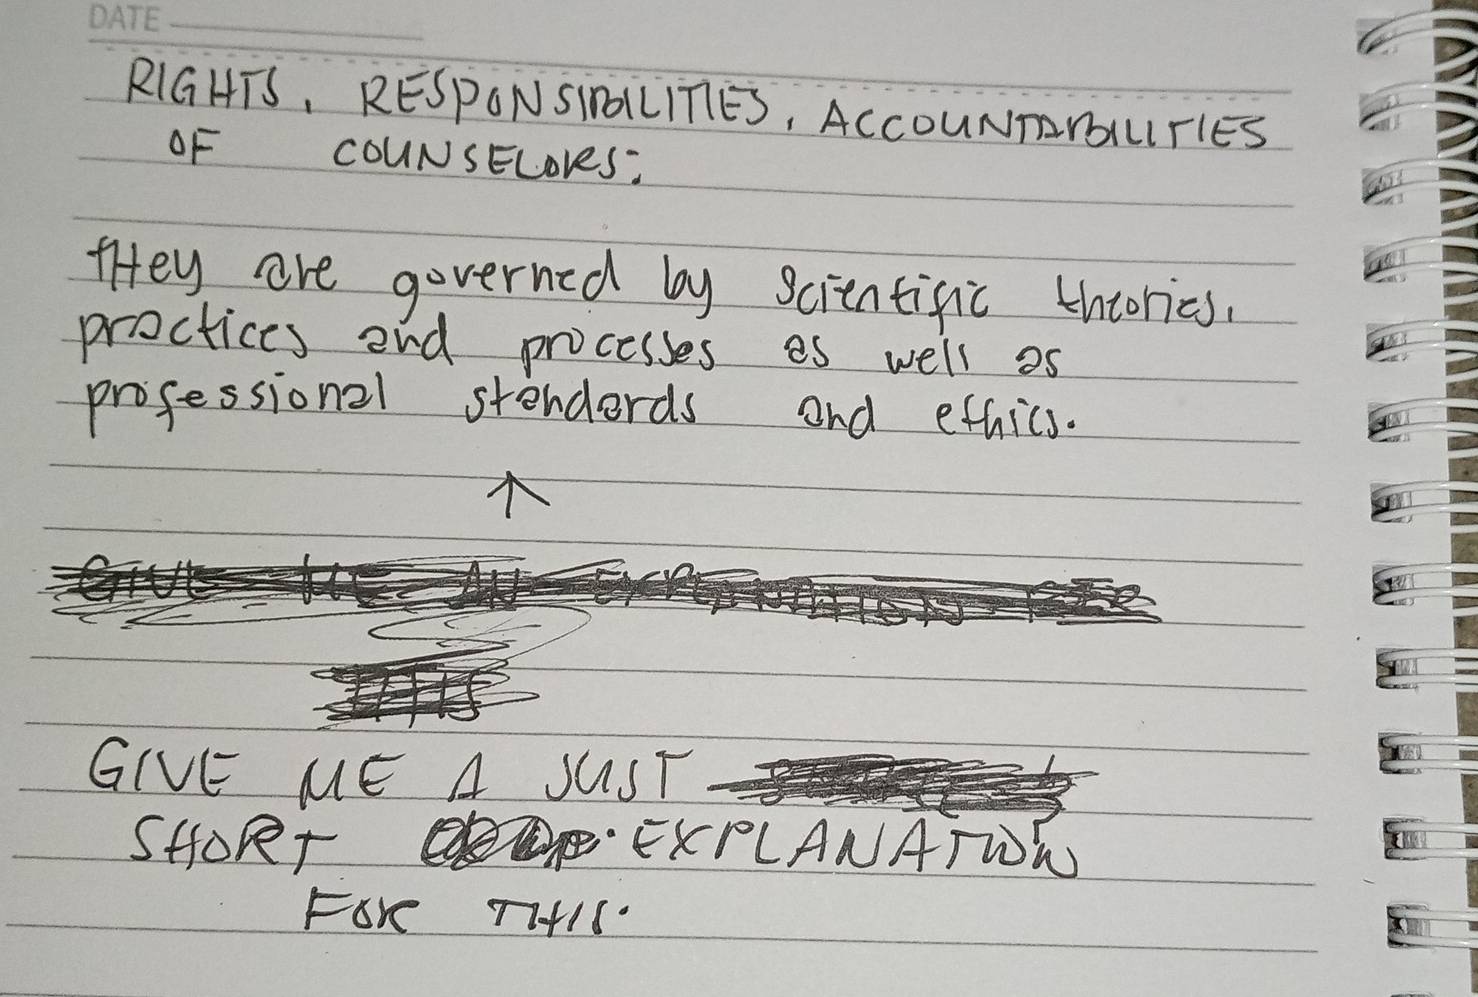 DATE
RIGHTS, RESPONSIBILITIES, ACCOUNTABILITIES
OF COUNSELORS:
tHey are governed by scientific theories,
practices and processes as well as
professional standards and ethics.
↑
GIVE ME AN EXPLANATION FOR
THIS
GIVE ME A JUST
SHORT EXPLANATION
FOR THIS.